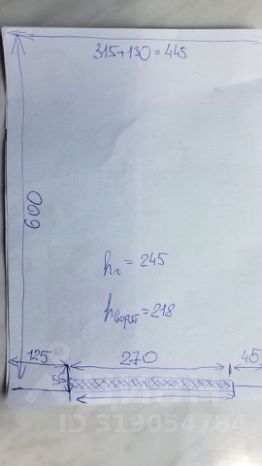 315+130=445
600
hг = 245
hворот=218
125
270
45
55
ID 319054784